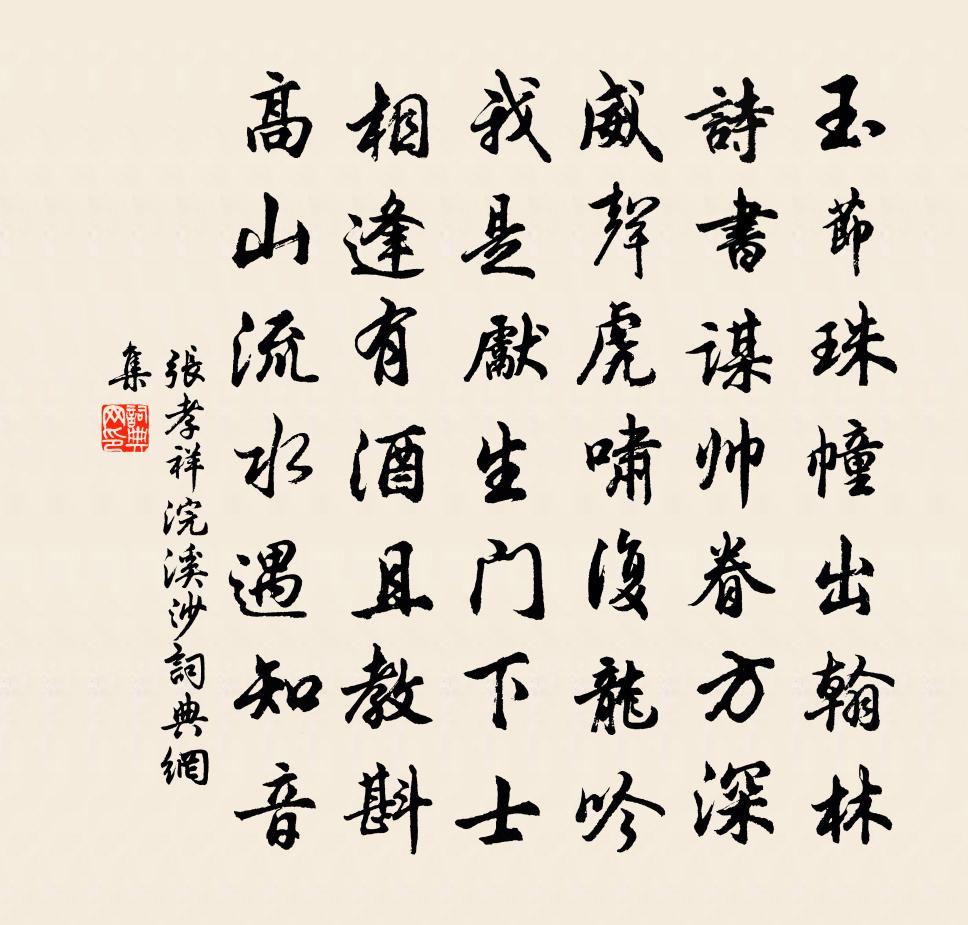 玉節珠幢出翰林
詩書謀帥眷方深
威聲虎嘯復龍吟
我是獻生门下士
相逢有酒且教斟
高山流水遇知音
張孝祥浣溪沙詞典網
集
詞典
网印